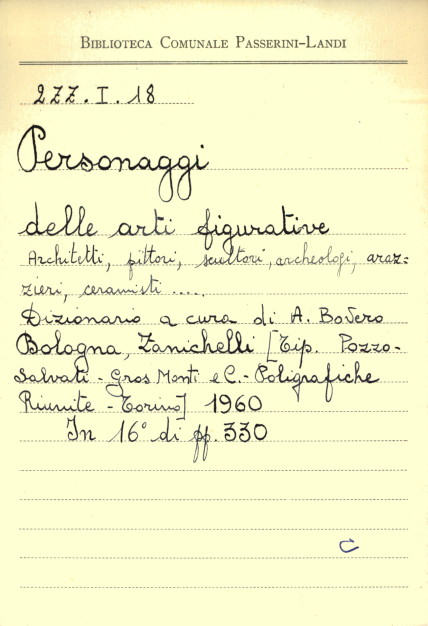 BIBLIOTECA COMUNALE PASSERINI-LANDI
2ZZ.I.18
Personaggi
delle arti figurative
Architetti, pittori, scultori, archeologi, araz=
zieri, ceramisti .....
Dizionario a cura di A. Bovero
Bologna, Zanichelli [Tip. Pozzo-
Salvati - Gros Monti e C. - Poligrafiche
Riunite - Torino] 1960
In 16° di pp. 330
C